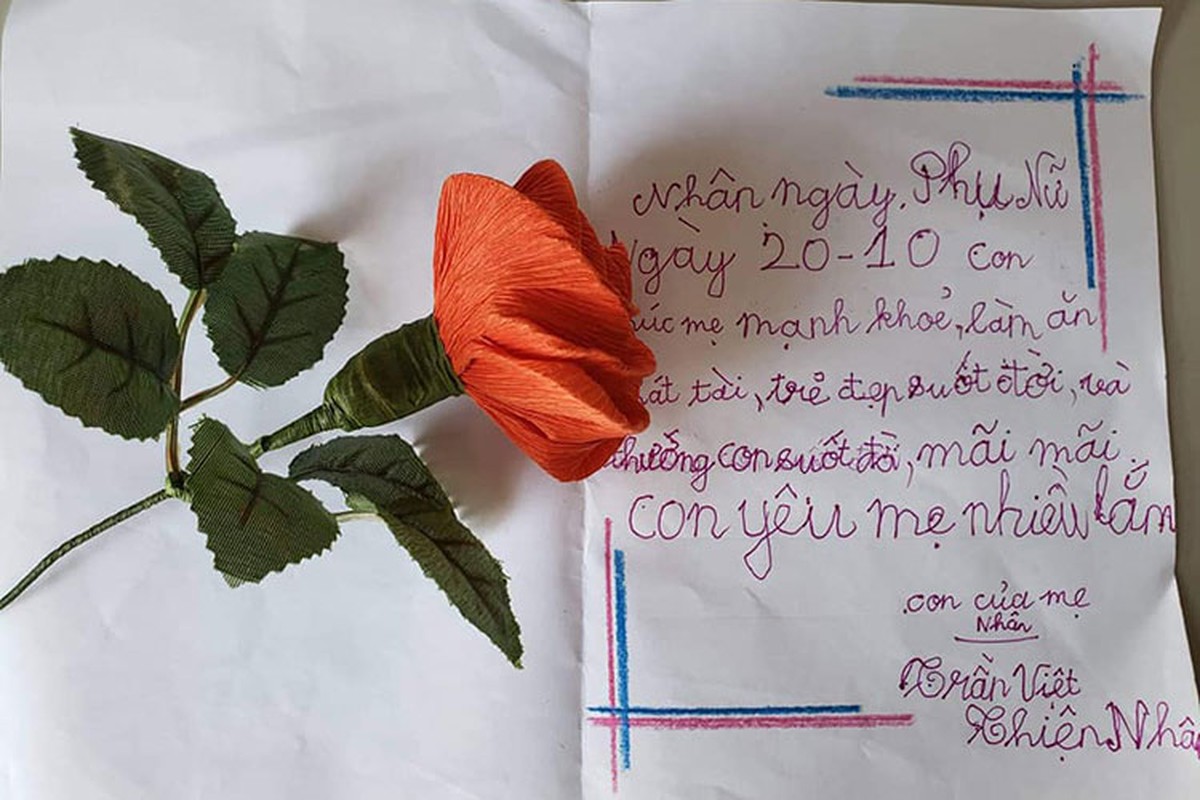 Nhân ngày. Phụ Nữ
Ngày 20-10 con
úc mẹ mạnh khoẻ, làm ăn
át tài, trẻ đẹp suốt đời, và
thưởng con suốt đờ, mãi mãi.
con yêu mẹ nhiều lắm
con của mẹ
Nhân
Trần Việt
Thiện Nhâ